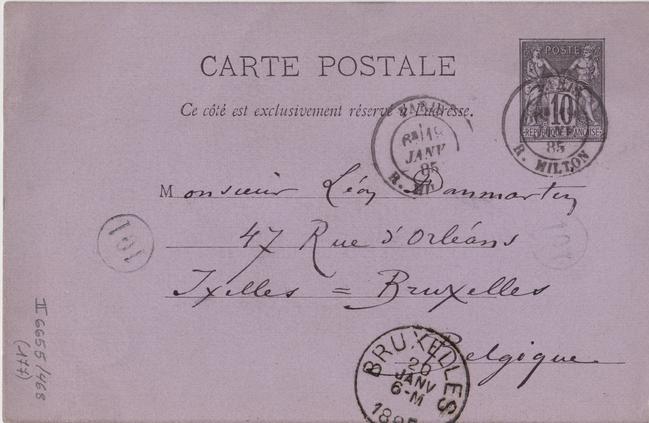 CARTE POSTALE
Ce côté est exclusivement réservé à l'adresse.
POSTE
10
REPUBLIQUE FRANÇAISE
PARIS
JANV
85
R. MILTON
PARIS
19
JANV
85
R. MIL
Monsieur Léon Dommartin
47 Rue d'Orléans
Ixelles = Bruxelles
Belgique
101
101
BRUXELLES
20
JANV
6-M
1885
II 6655/468
(177)